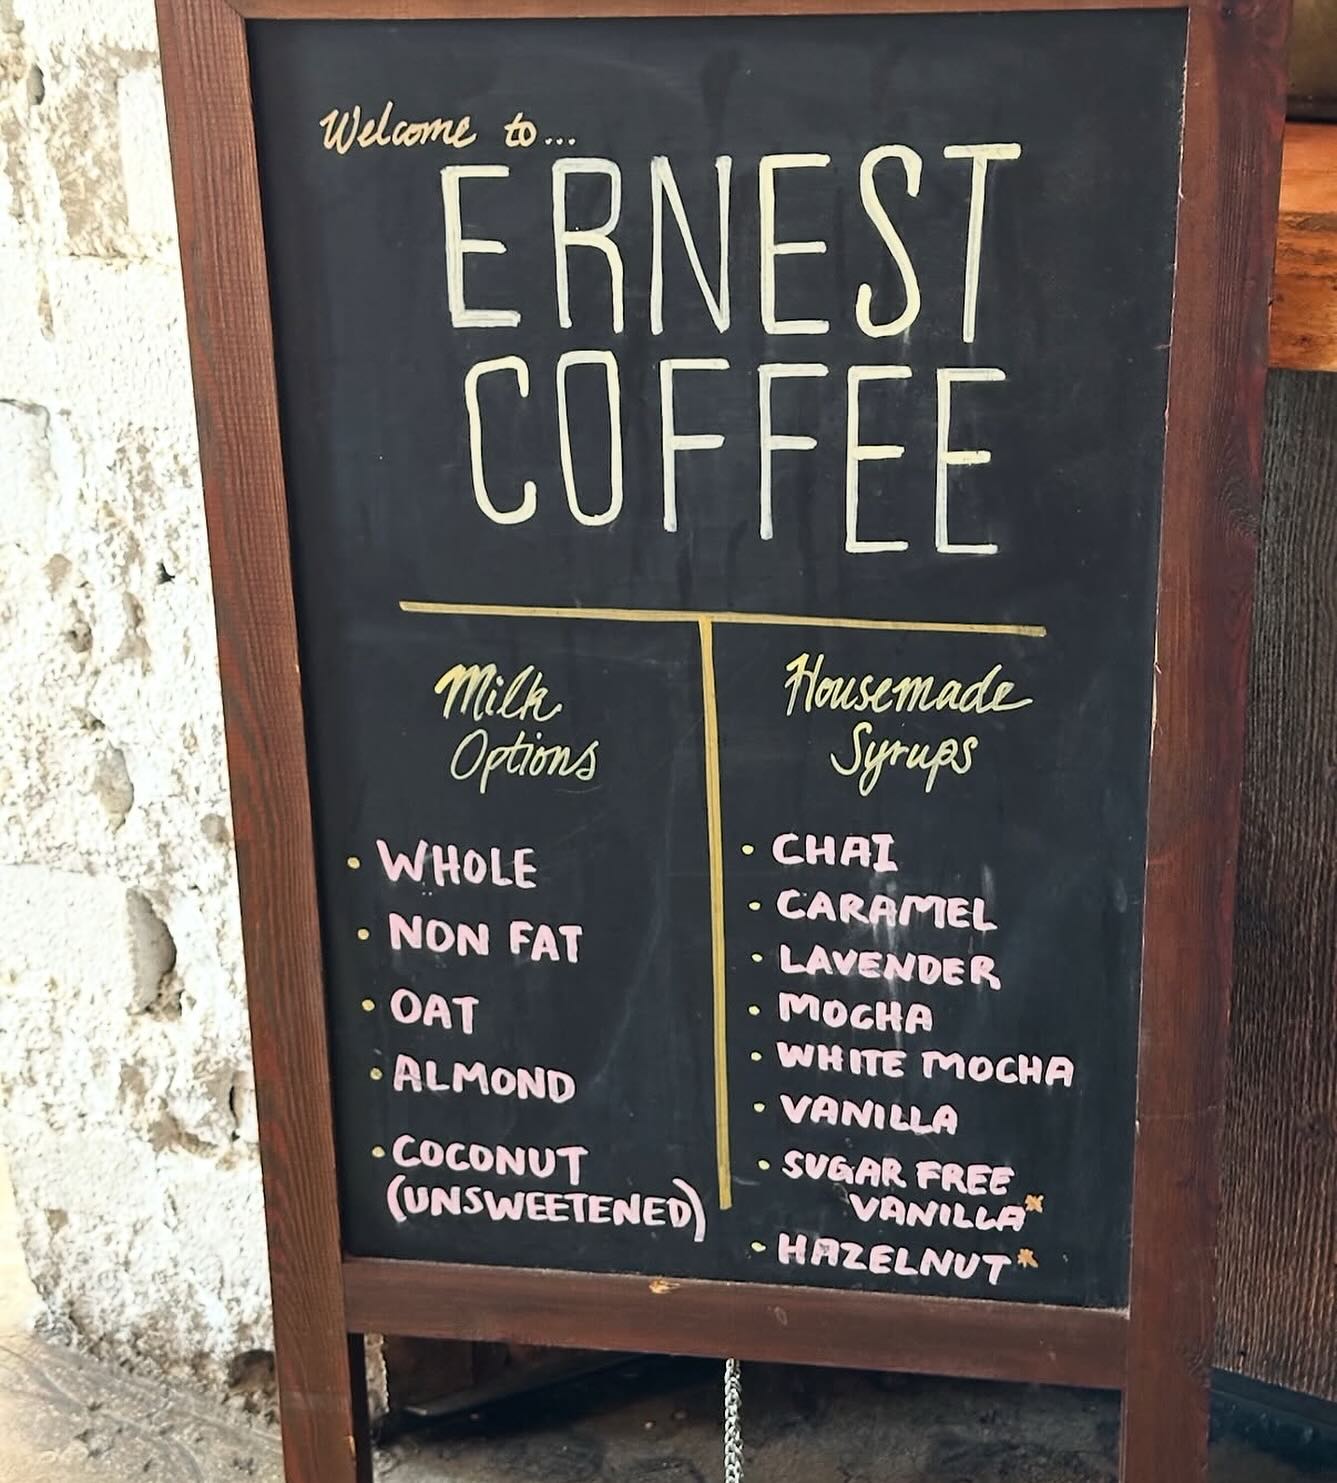 Welcome to...
ERNEST
COFFEE
Milk
Options
• WHOLE
• NON FAT
• OAT
• ALMOND
• COCONUT
(UNSWEETENED)
Housemade
Syrups
• CHAI
• CARAMEL
• LAVENDER
• MOCHA
• WHITE MOCHA
• VANILLA
• SUGAR FREE
VANILLA*
• HAZELNUT*